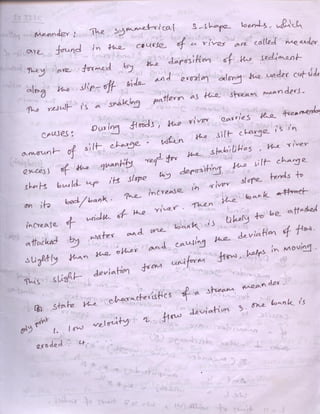 Meander: The symmetrical S-shape bends. which
are found in the course of a river are called meander
They are formed by the daposition of the sediment
along the slip-off side and erosion along the under cut side
The result is a snaking pattern as the stream manders.
causes: During floods, the river carries the treamendo
amount of silt charge. when the silt charge is in
excess of the quantity reqd for the stabilities, the river
shots build up its slope by depositing the silt change
on its bad/bank. The increase in river slope tends to
increase of width of the river. Then the bank attract
attacked by water and one bank is likely to be attacked
slightly than the other and causing the deviation of flow.
This slight deviation from uniform flow, helps in moving.
State the characteristics of a stream meander.
only point 1. low velocity 2. flow deviation 3. one bank is
eroded 4.